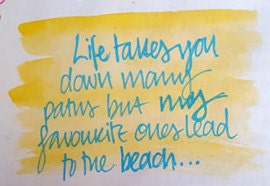 Life takes you
down many
paths but my
favourite ones lead
to the beach...